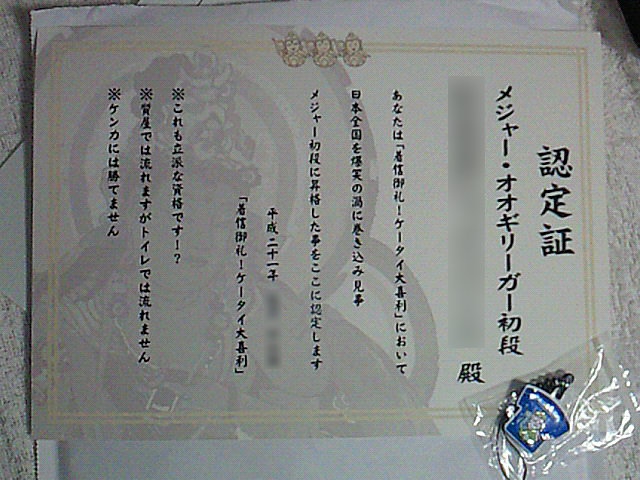 認定証
メジャー・オオギリーガー初段
殿
あなたは「着信御礼!ケータイ大喜利」において
日本全国を爆笑の渦に巻き込み見事
メジャー初段に昇格した事をここに認定します
平成二十一年
「着信御礼!ケータイ大喜利」
※これも立派な資格です!?
※質屋では流れますがトイレでは流れません
※ケンカには勝てません